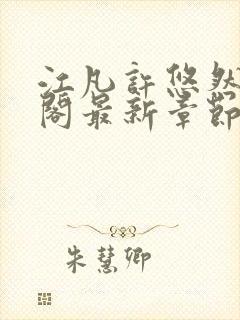 江凡許悠然
閣最新章節
朱慧卿